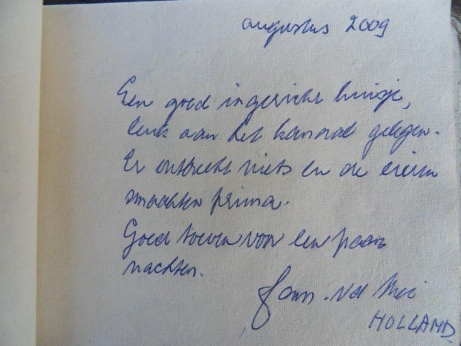 augustus 2009
Een goed ingericht huisje,
leuk aan het kanaal gelegen.
Er ontbreekt niets en de eieren
smaakten prima.
Goed toeven voor een paar
nachten.
HOLLAND